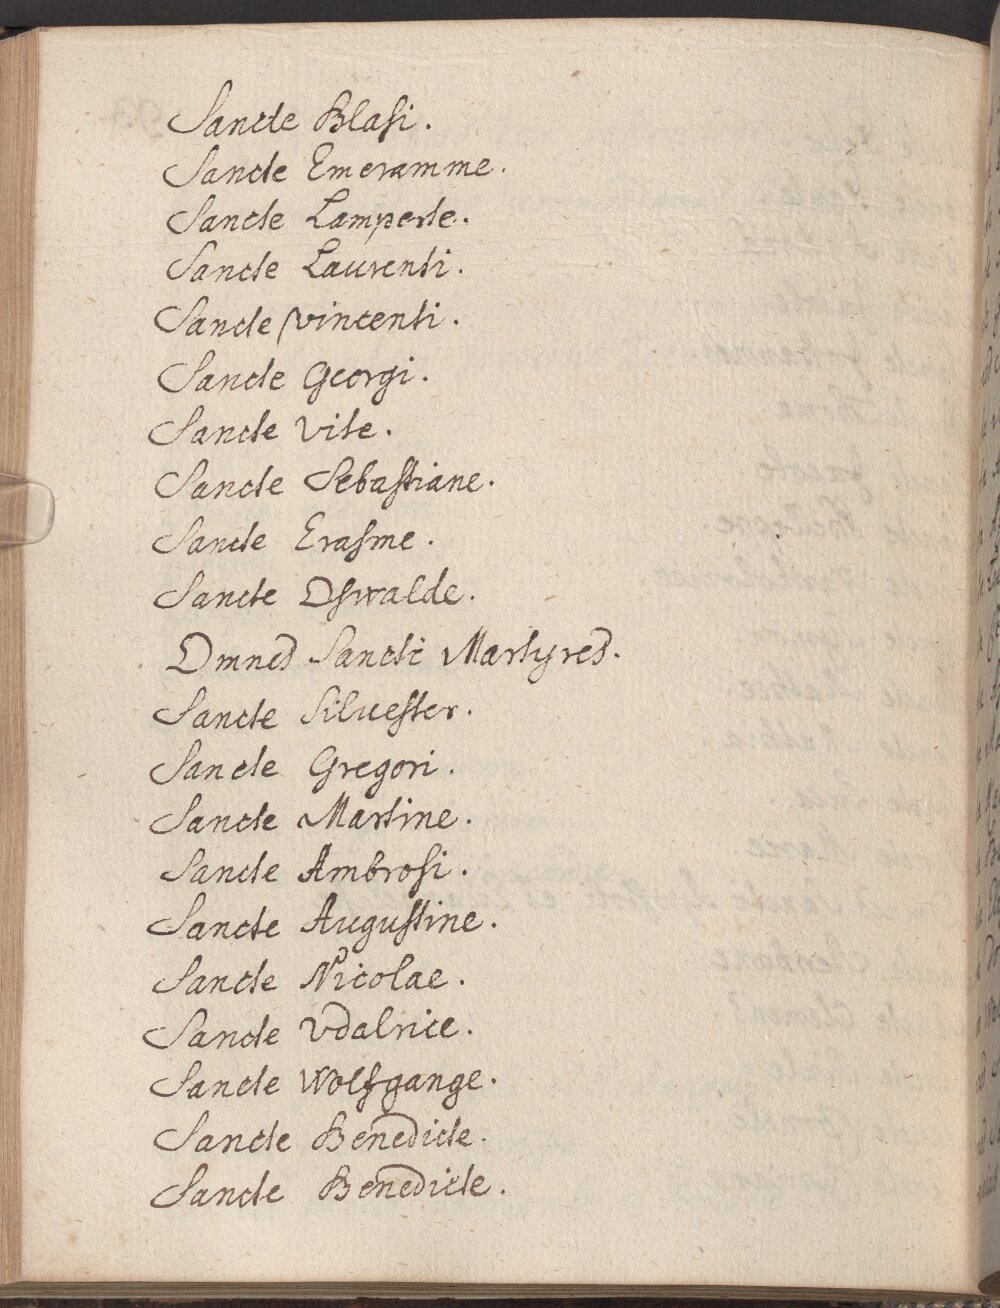 Sancte Blasi.
Sancte Emeramme.
Sancte Lamperte.
Sancte Laurenti.
Sancte Vincenti.
Sancte Georgi.
Sancte Vite.
Sancte Sebastiane.
Sancte Erasme.
Sancte Oswalde.
Omnes Sancti Martyres.
Sancte Silvester.
Sancte Gregori.
Sancte Martine.
Sancte Ambrosi.
Sancte Augustine.
Sancte Nicolae.
Sancte Vdalrice.
Sancte Wolfgange.
Sancte Benedicte.
Sancte Benedicte.